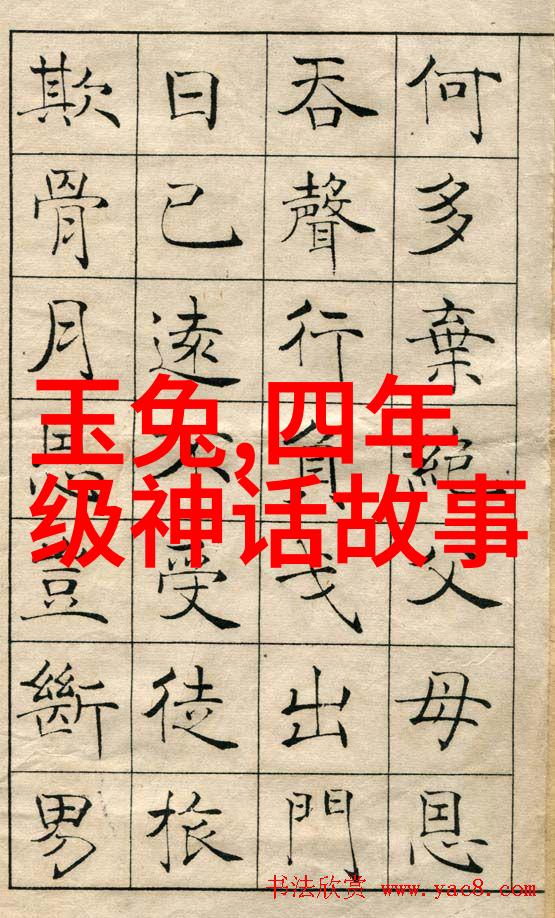 何多棄絕父母恩
吞聲行負戈出門
日已遠不受徒旅
欺骨月恩豈斷男
玉兔,四年
级神话故事
书法欣赏 www.yac8.com